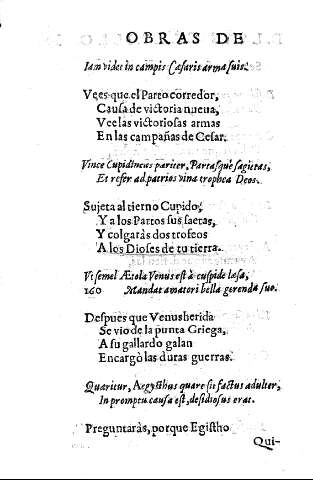 OBRAS DE
Iam videt in campis Cæsaris arma suis.
Vees que el Parto corredor,
Causa de victoria nueua,
Vee las victoriosas armas
En las campañas de Cesar.
Vince Cupidineas pariter, Partasque sagitas,
Et refer ad patrios vina trophea Deos.
Sujeta al tierno Cupido,
Y a los Partos sus saetas,
Y colgaràs dos trofeos
A los Dioses de tu tierra.
Vt semel Ætola Venus est à cuspide læsa,
160 Mandat amatori bella gerenda suo.
Despues que Venus herida
Se vio de la punta Griega,
A su gallardo galan
Encargò las duras guerras.
Quæritur, Aegysthus quare sit factus adulter,
In promptu causa est, desidiosus erat.
Preguntaràs, porque Egistho
Qui-